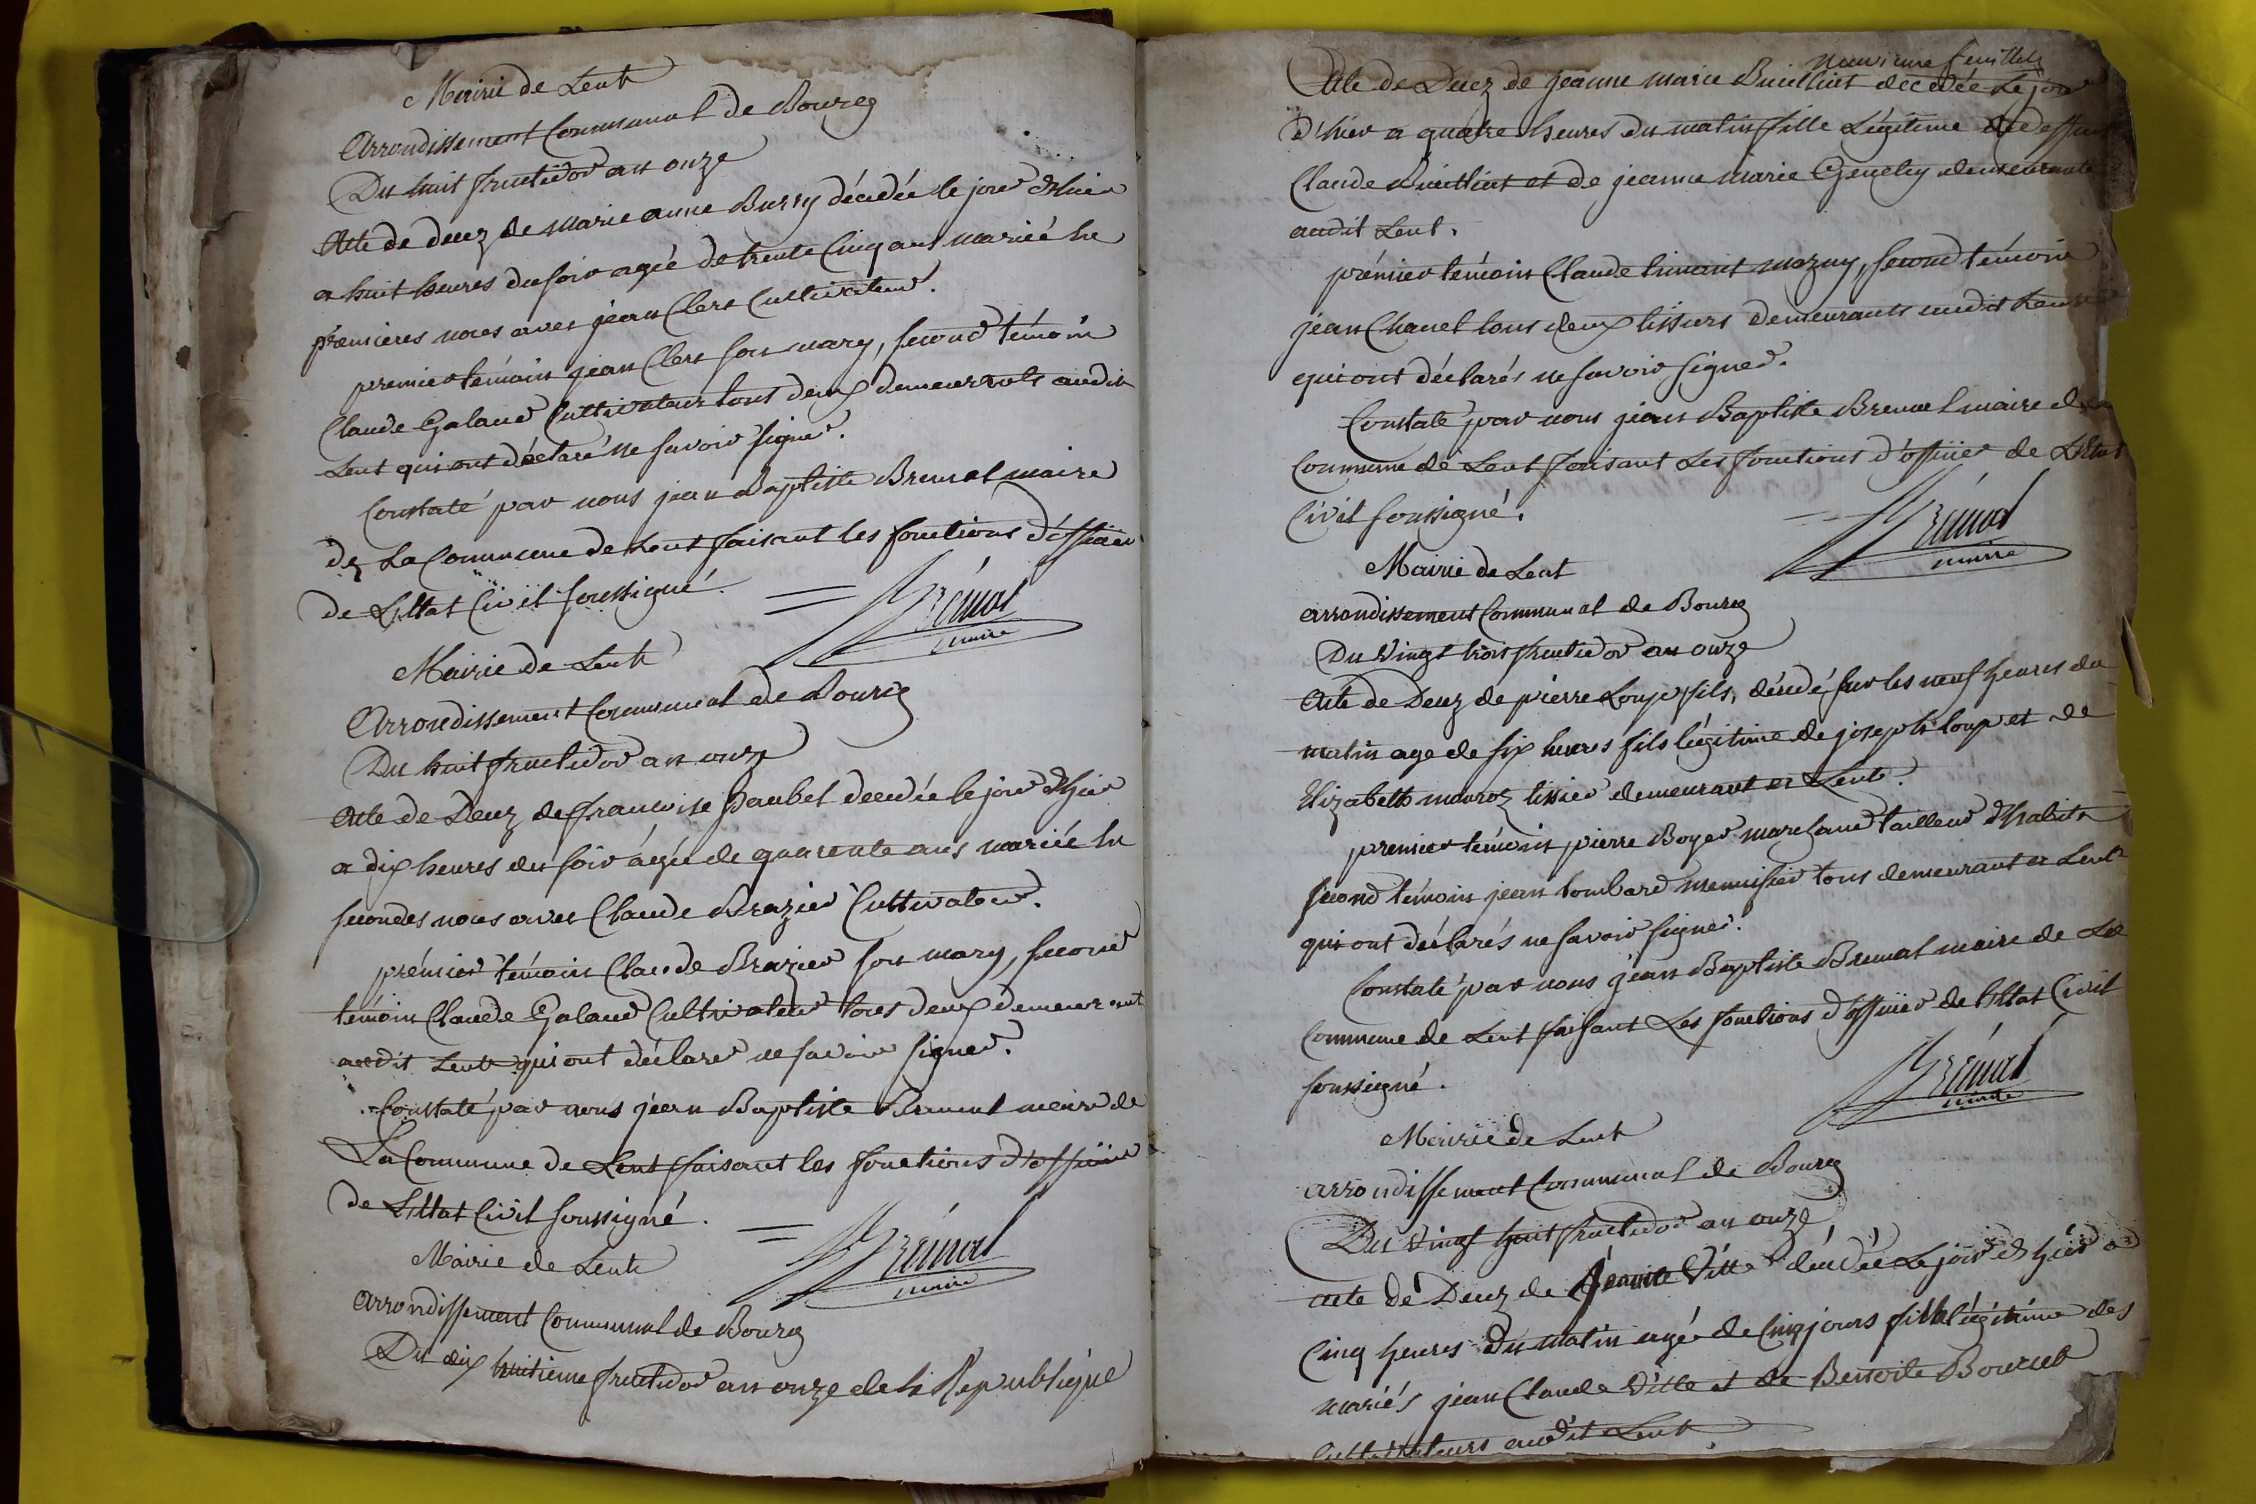 Mairie de Lent
Arrondissement Communal de Bourg
Du huit fructidor an onze
Acte de decez de marie anne Burry décédée le jour d'hier
a huit heures du soir agée de trente cinq ans mariée en
prémieres noces avec jean Clerc Cultivateur.
premier témoin jean Clerc son mary, second témoin
Claude Galand Cultivateur tous deux demeurants audit
Lent qui ont déclaré ne savoir signer.
Constaté par nous jean Baptiste Brenal maire
de La Commune de Lent faisant les fonctions d'officier
de L'Etat Civil soussigné.
Brénal
maire
Mairie de Lent
Arrondissement Communal de Bourg
Du huit fructidor an onze
Acte de Decez de francoise Jaubet décédée le jour d'hier
a dix heures du soir agée de quarente ans mariée en
secondes noces avec Claude Brazier Cultivateur.
prémier témoin Claude Brazier son mary, second
témoin Claude Galand Cultivateur tous deux demeurant
audit Lent qui ont déclarer ne savoir signer.
Constaté par nous jean Baptiste Brenal maire de
La Commune de Lent faisant les fonctions d'officier
de L'Etat Civil soussigné.
Brénal
maire
Mairie de Lent
Arrondissement Communal de Bourg
Du dix huitieme fructidor an onze de la Republique
neuvieme feuillet
Acte de Decez de jeanne marie décédée Le jour
d'hier a quatre heures du matin fille Légitime de deffunt
Claude et de jeanne marie demeurante
audit Lent.
prémier témoin Claude, second témoin
jean Chanel tous deux tissiers demeurants audit Lent
qui ont déclarés ne savoir signer.
Constaté par nous jean Baptiste Brenal maire de la
Commune de Lent faisant Les fonctions d'officier de L'Etat
Civil soussigné.
Brénal
maire
Mairie de Lent
arrondissement Communal de Bourg
Du vingt trois fructidor an onze
Acte de Decez de pierre Loup fils, décédé sur les neuf heures du
matin age de six heures fils légitime de joseph loup et de
Elizabeth tissier demeurant a Lent.
premier témoin pierre Boyer marchand tailleur d'habits
second témoin jean lombard menuisier tous demeurant a Lent
qui ont déclarés ne savoir signer.
Constaté par nous jean Baptiste Brenal maire de La
Commune de Lent faisant Les fonctions d'officier de l'Etat Civil
soussigné.
Brénal
maire
Mairie de Lent
arrondissement Communal de Bourg
Du vingt huit fructidor an onze
acte de Decez de Benoite Vitte décédée Le jour d'hier a
Cinq heures du matin agée de Cinq jours fille légitime des
mariés jean Claude Vitte et de Benoite Bourcet
Cultivateurs audit Lent.